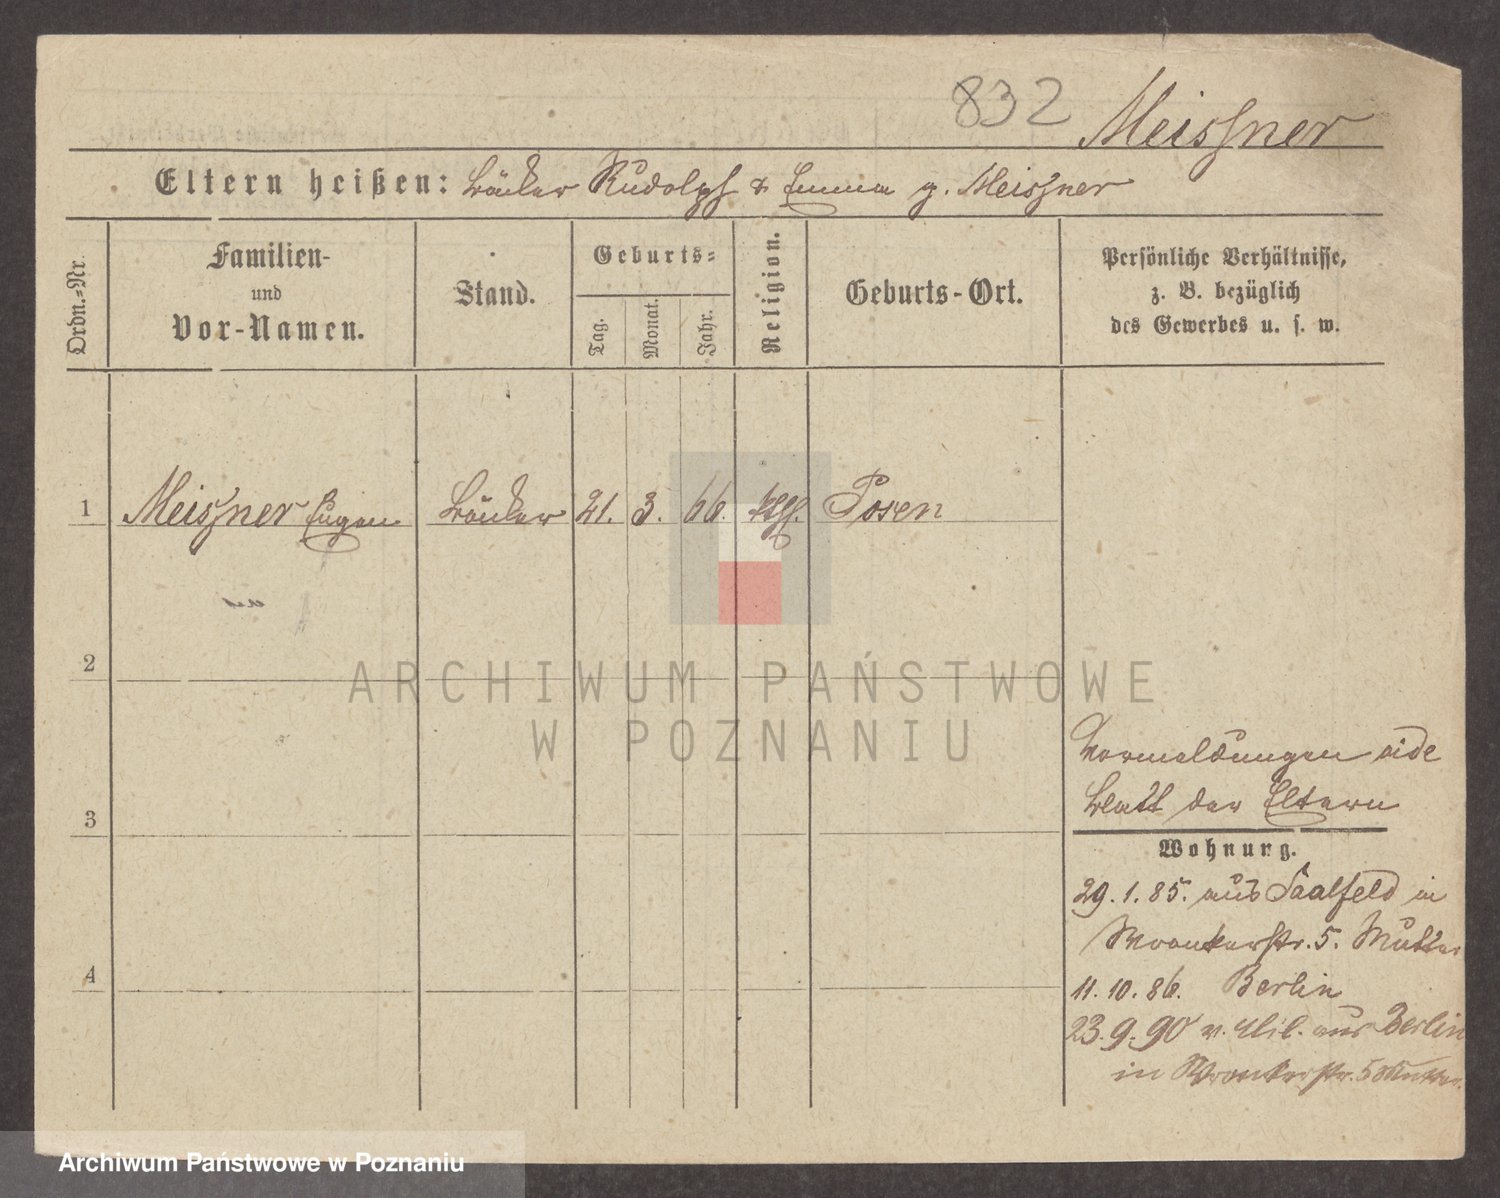 832 Meissner
Eltern heißen: Bäcker Rudolph & Emma g. Meissner
Ordn.=Nr.
Familien-
und
Vor-Namen.
Stand.
Geburts=
Tag.
Monat.
Jahr.
Religion.
Geburts-Ort.
Persönliche Verhältnisse,
z. B. bezüglich
des Gewerbes u. s. w.
1 Meissner Eugen Bäcker 21. 3. 66. kth. Posen
2
ARCHIWUM PAŃSTWOWE
W POZNANIU
Vormeldungen vide
Blatt der Eltern
3
Wohnung.
29. 1. 85. aus Saalfeld in
Wronkerstr. 5. Mutter
4
11. 10. 86. Berlin
23. 9. 90 v. Mil. aus Berlin
in Wronkerstr. 5 Mutter.
Archiwum Państwowe w Poznaniu